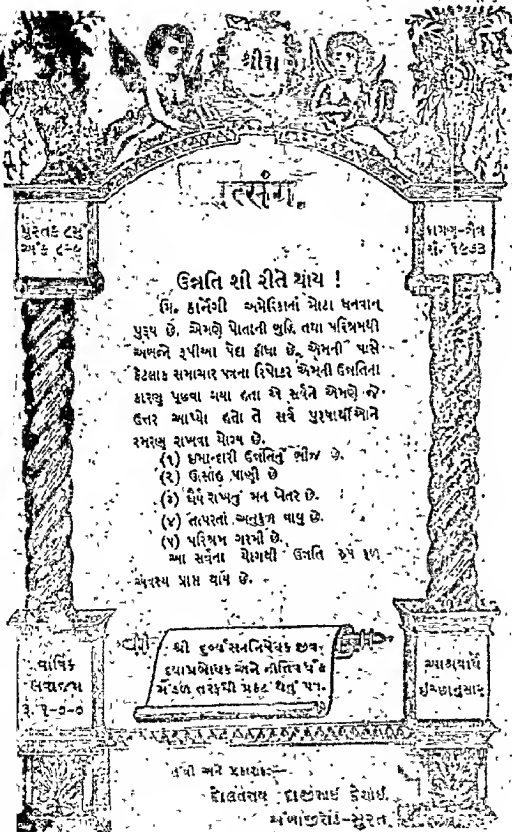 શ્રીરા
સત્સંગ.
પુસ્તક ૮મું
અંક ૮-૯
ફાગણ-ચૈત્ર
સં. ૧૯૬૩
ઉન્નતિ શી રીતે થાય !
મિ. કાર્નેગી અમેરિકાના મોટા ધનવાન
પુરૂષ છે. એમણે પોતાની બુદ્ધિ તથા પરિશ્રમથી
અબજો રૂપીઆ પેદા કીધા છે. એમની પાસે
કેટલાક સમાચાર પત્રના રિપોર્ટર એમની ઉન્નતિના
કારણ પૂછવા ગયા હતા એ સર્વને એમણે જે
ઉત્તર આપ્યો હતો તે સર્વ પુરૂષાર્થીઓને
સ્મરણ રાખવા યોગ્ય છે.
(૧) ઇમાનદારી ઉન્નતિનું બીજ છે.
(૨) ઉત્સાહ પાણી છે
(૩) ધૈર્ય રાખનું મન ખેતર છે.
(૪) તત્પરતા અનુકુળ વાયુ છે.
(૫) પરિશ્રમ ગરમી છે.
આ સર્વના યોગથી ઉન્નતિ રૂપ ફળ
અવશ્ય પ્રાપ્ત થાય છે.
શ્રી દુર્વ્યસનનિષેધક જીવ-
દયાપ્રબોધક અને નીતિવર્ધક
મંડળ તરફથી પ્રકટ થતું પત્ર.
વાર્ષિક
લવાજમ
રૂ. ૧-૦-૦
ઇચ્છાનુસાર
તંત્રી અને પ્રકાશક:—
દોલતરાય દાજીભાઈ દેશાઈ.
અંબાજીરોડ-સુરત.